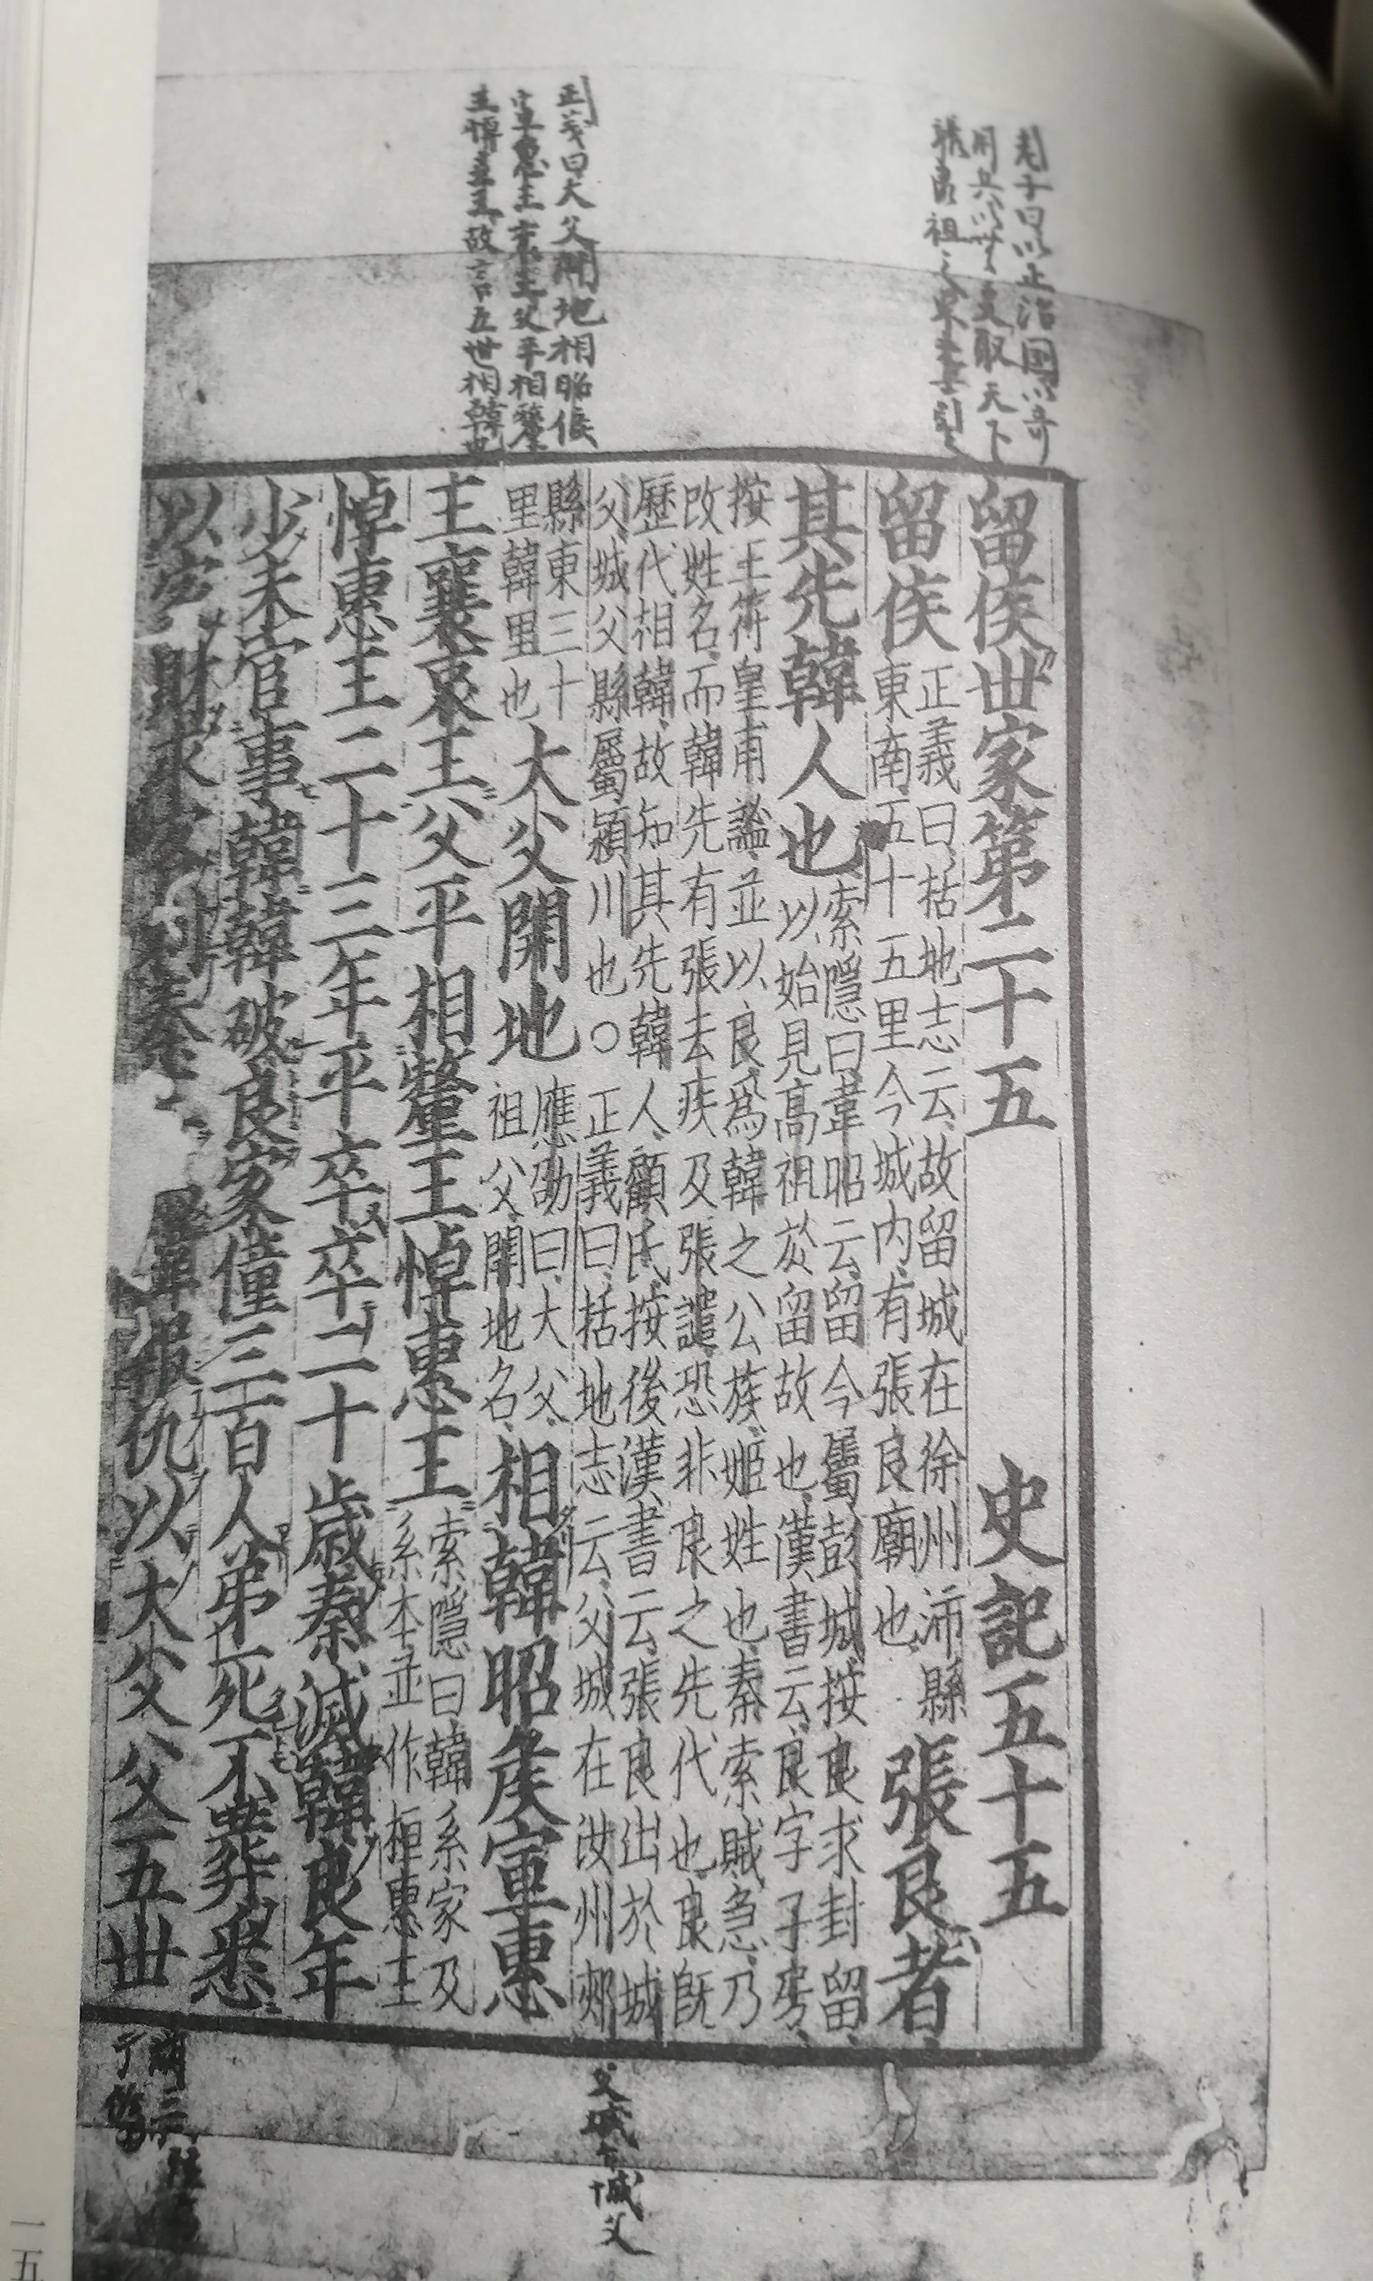 老子曰以正治國以奇
用兵以無事取天下
正義曰大父開地相昭侯
宣惠王襄王父平相釐
王悼王故言五世相韓也
留侯世家第二十五 史記五十五
留侯
正義曰括地志云故留城在徐州沛縣
東南五十五里今城內有張良廟也
張良者
其先韓人也
索隱曰韋昭云留今屬彭城按良求封留
以始見高祖於留故也漢書云良字子房
按王符皇甫謐並以良為韓之公族姬姓也秦索賊急乃
改姓名而韓先有張去疾及張譴恐非良之先代也良既
歷代相韓故知其先韓人顧氏按後漢書云張良出於城
父城父縣屬潁川也○正義曰括地志云父城在汝州郟
縣東三十
里韓里也
大父開地
應劭曰大父
祖父開地名
相韓昭侯宣惠
王襄哀王父平相釐王悼惠王
索隱曰韓系家及
系本並作桓惠王
悼惠王二十三年平卒卒二十歲秦滅韓良年
少未宦事韓韓破良家僮三百人弟死不葬悉
以家財求客刺秦王為韓報仇以大父父五世
父城
城父
一五